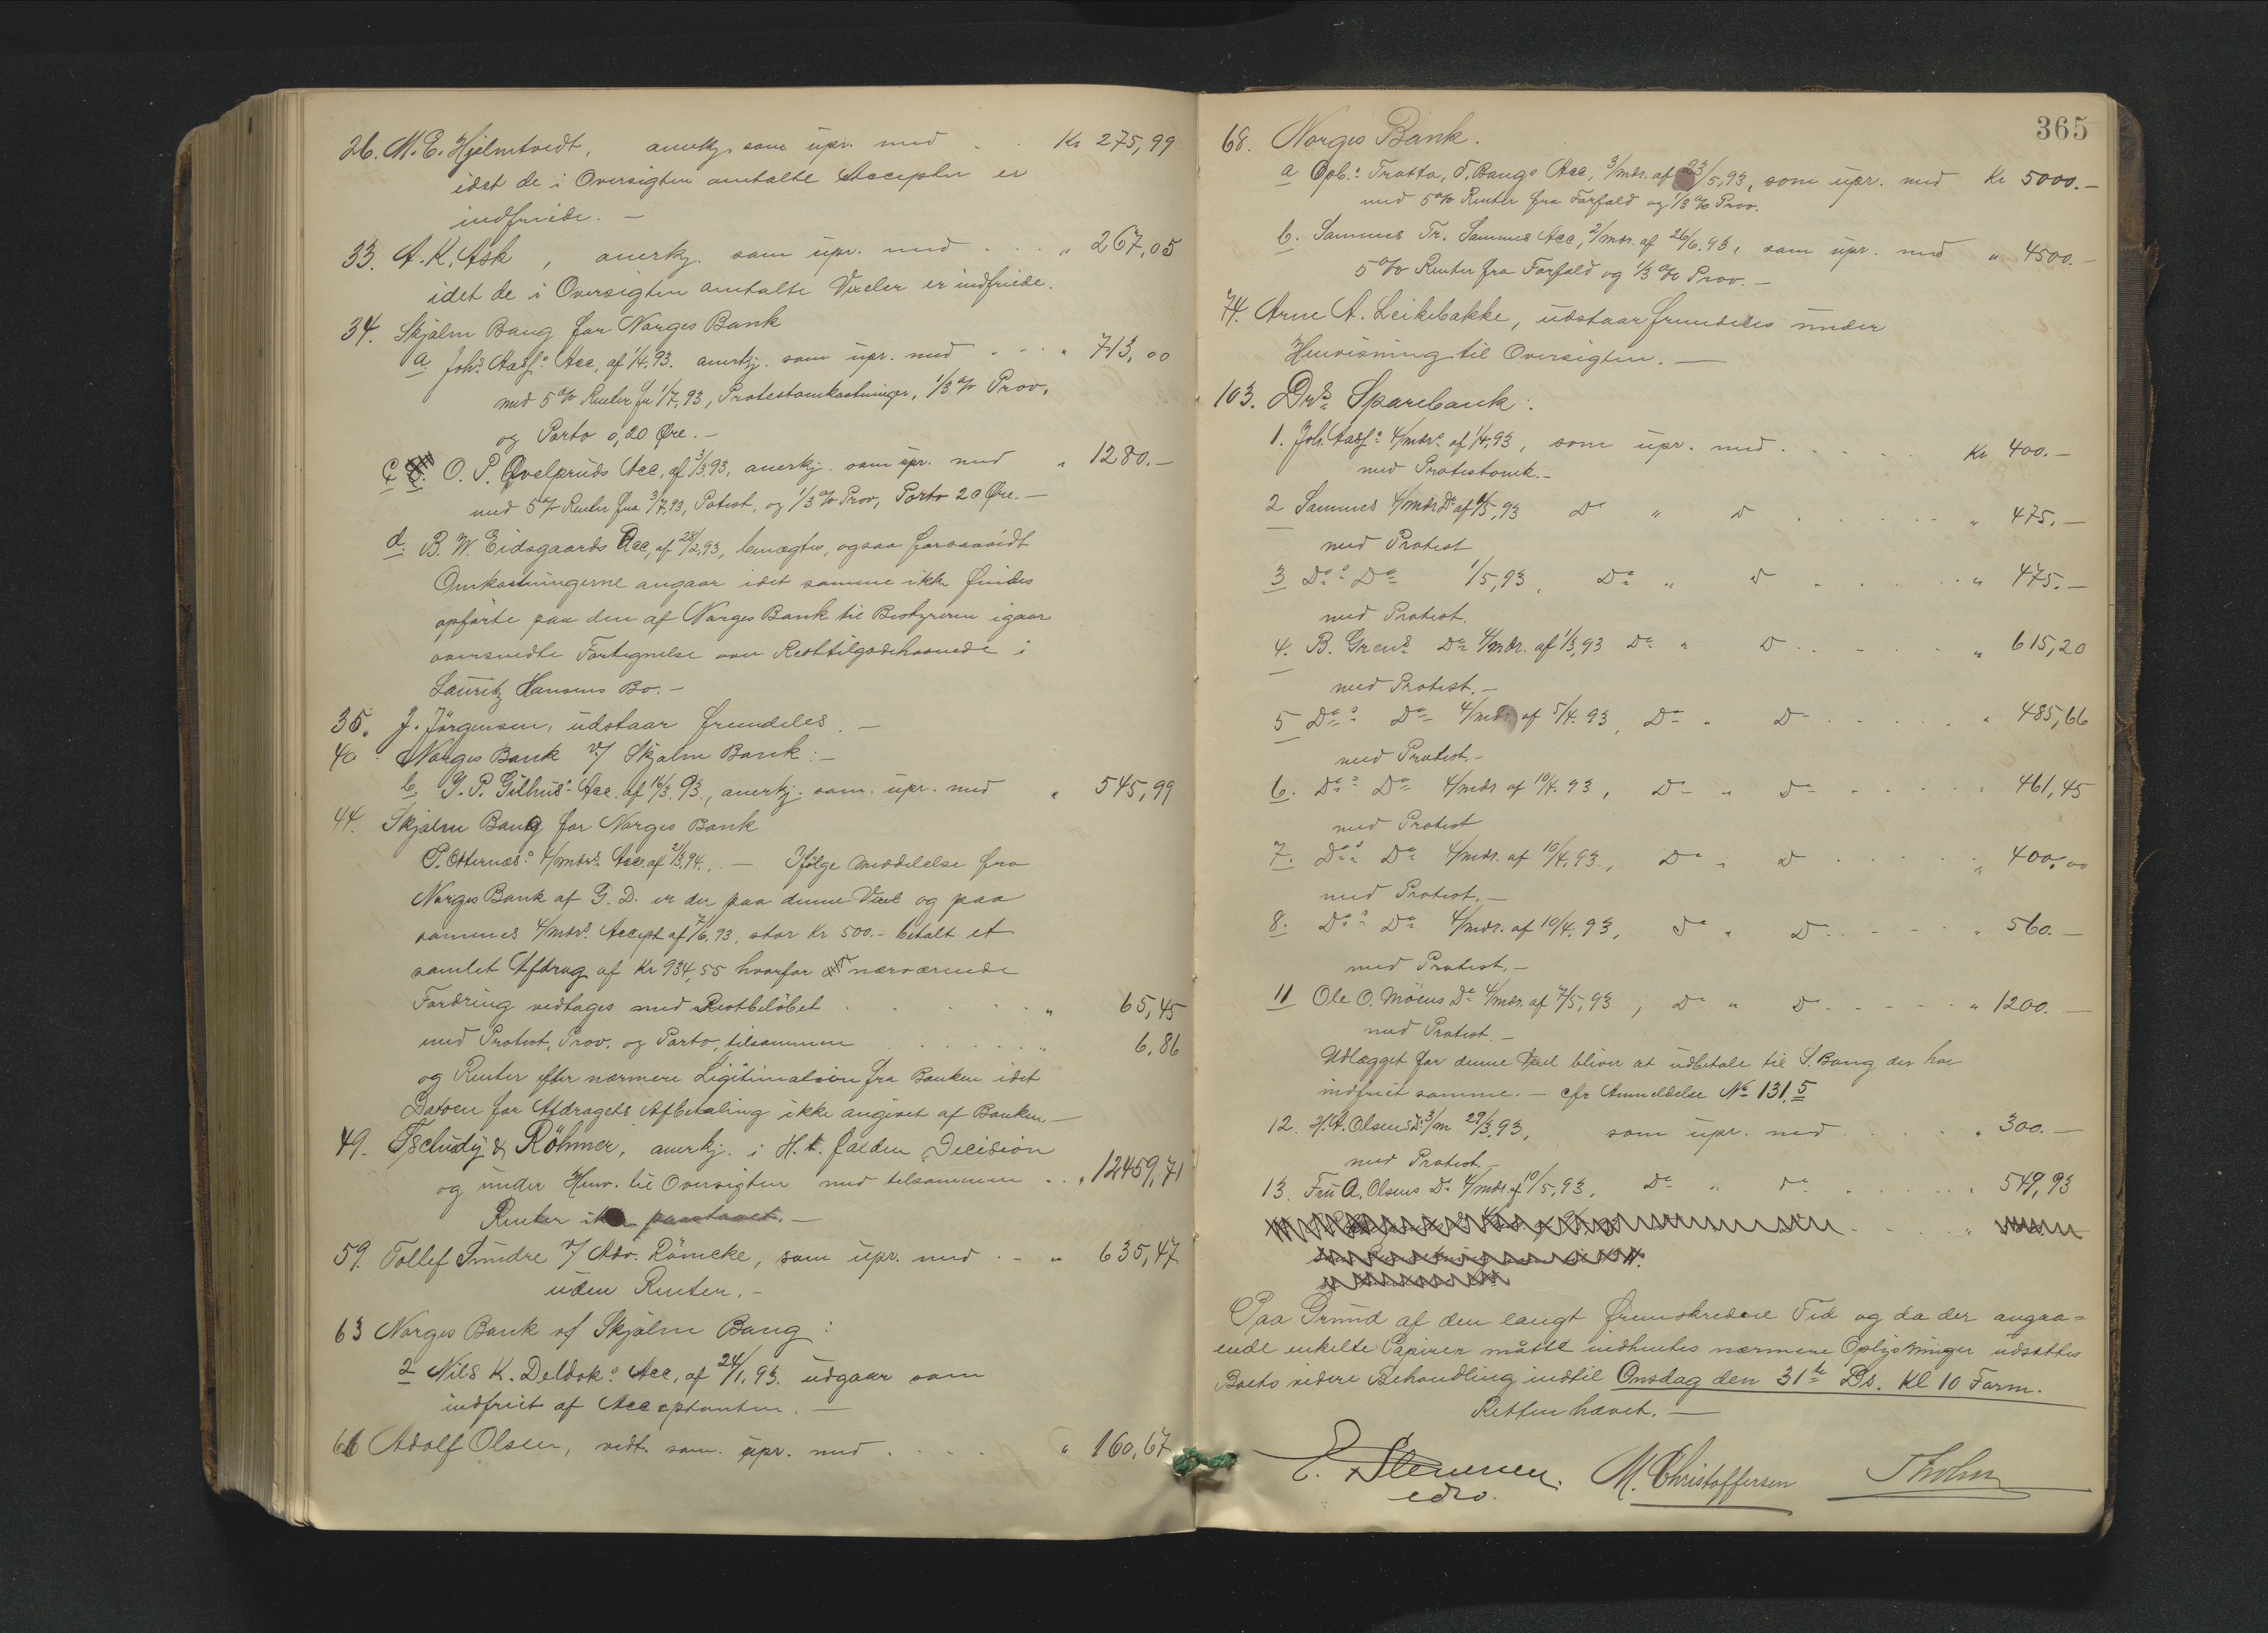 26. M. E. Hjelmtvedt, anerkj. som upr. med . . Kr 275,99
idet de i Oversigten omtalte Accepter er
indfriede. —
33. A. K. Ask, anerkj. som upr. med . . . " 267,05
idet de i Oversigten omtalte Vexler er indfriede.
34. Skjalm Bang for Norges Bank
a. Johs Aasss Acc. af 1/4.93. anerkj. som upr. med . . . " 713,00
med 5 % Renter fra 1/7.93, Protestomkostninger, 1/3 % Prov.
og Porto 0,20 Øre. —
c O. P. Qvelpruds Acc. af 3/3.93, anerkj. som upr. med " 1280. —
med 5 % Renter fra 3/7.93, Protest, og 1/3 % Prov, Porto 20 Øre. —
d. B. W. Eidsgaards Acc. af 28/2.93, benægtes, ogsaa forsaavidt
Omkostningerne angaar idet samme ikke findes
opførte paa den af Norges Bank til Bestyreren igaar
oversendte Fortegnelse over Resttilgodehavende i
Lauritz Hansens Bo. —
35. J. Jörgensen, udstaar fremdeles. —
40 Norges Bank v/ Skjalm Bank: —
b. G. P. Gilhus' Acc. af 16/3.93., anerkj. som upr. med " 545,99
44. Skjalm Bang for Norges Bank
P. Otternæs' 4/mdrs Acc. af 2/3.94. . — Ifølge Meddelelse fra
Norges Bank af G. D. er der paa denne Vexel og paa
sammes 4/mdrs Accept af 7/6.93, stor Kr 500.- betalt et
samlet Afdrag af Kr 934,55 hvorfor nærværende
Fordring vedtages med Restbeløbet . . . . . " 65,45
med Protest, Prov. og Porto, tilsammen . . . . . " 6,86
og Renter efter nærmere Legitimation fra Banken idet
Datoen for Afdragets Afbetaling ikke angivet af Banken —
49. Tschudy & Röhmer, anerkj. i H. t. falden Decision
og under Henv. til Oversigten med tilsammen . . " 12459,71
Renter ikke paastaaet. —
59. Tollef Sundre v/ Adv. Römcke, som upr. med . - " 635,47
uden Renter. —
63 Norges Bank v/ Skjalm Bang :
2 Nils K. Deldok's Acc. af 24/1.93. udgaar som
indfriet af Acceptanten. —
66 Adolf Olsen, vedt. som upr. med . . . . " 160,67
365
68. Norges Bank.
a Opb.s Tratta, S. Bangs Acc, 3/mdr. af 23/5.93, som upr. med Kr 5000. —
med 5 % Renter fra Forfald og 1/3 % Prov.
b. Sammes Tr. Sammes Acc, 2/mdr. af 26/6.93, som upr. med " 4500. —
5 % Renter fra Forfald og 1/3 % Prov. —
74. Arne A. Leikebakke, udstaar fremdeles under
Henvisning til Oversigten. —
103. Drs Sparebank:
1. Joh. Aass's 4/mdrs af 1/4.93, som upr. med . . . . . Kr 400. —
med Protestomk. —
2 Sammes 4/mdr Do af 1/5.93 Do " D . . . . . " 475. —
med Protest
3 Dos Do 1/5.93, Do " D . . . . . " 475. —
med Protest.
4. B. Grens Do 4/mdr. af 1/3.93 Do " D . . . . . " 615,20
med Protest. —
5 Dos Do 4/mdr. af 5/4.93, Do " Do . . . . . " 485,66
med Protest. —
6. Dos Do 4/mdr af 10/4.93, Do " Do . . . . . " 461,45
med Protest
7. Dos Do 4/mdr. af 10/4.93, Do " D . . . . . " 400,00
med Protest. —
8. Dos Do 4/mdr. af 10/4.93, Do " D . . . . . " 560. —
med Protest. —
11 Ole O. Möens Do 4/mdr. af 7/5.93, Do " D . . . . . " 1200. —
med Protest. —
Udlægget for denne Vexel bliver at udbetale til S. Bang der har
indfriet samme. — cfr Anmeldelse No 131.5
12. H. A. Olsens Do 3/m 29/3.93, som upr. med . . . . . " 300. —
med Protest. —
13. Fru A. Olsens Do 4/mdr. af 10/5.93. Do " Do . . . . . " 549,93
Paa Grund af den langt fremskredne Tid og da der angaa=
ende enkelte Papirer måtte indhentes nærmere Oplysninger udsattes
Boets videre Behandling indtil Onsdag den 31te Ds. Kl 10 Form.
Retten hævet. —
M. Christoffersen